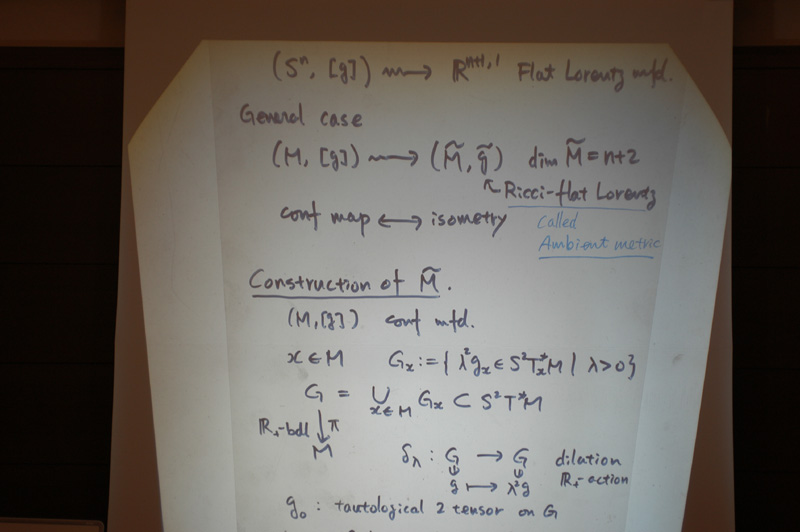 (Sⁿ, [g]) ⟿ ℝⁿ⁺¹,¹ Flat Lorentz mfd.
General case
(M, [g]) ⟿ (M̃, g̃) dim M̃ = n+2
↖ Ricci-flat Lorentz
conf map ⟷ isometry
called
Ambient metric
Construction of M̃.
(M, [g]) conf mfd.
x ∈ M Gₓ := { λ²gₓ ∈ S²Tₓ*M | λ > 0 }
G = ∪ₓ∈M Gₓ ⊂ S²T*M
ℝ₊-bdl ↓ π
M
δλ : G → G dilation
g ↦ λ²g ℝ₊-action
g₀ : tautological 2 tensor on G